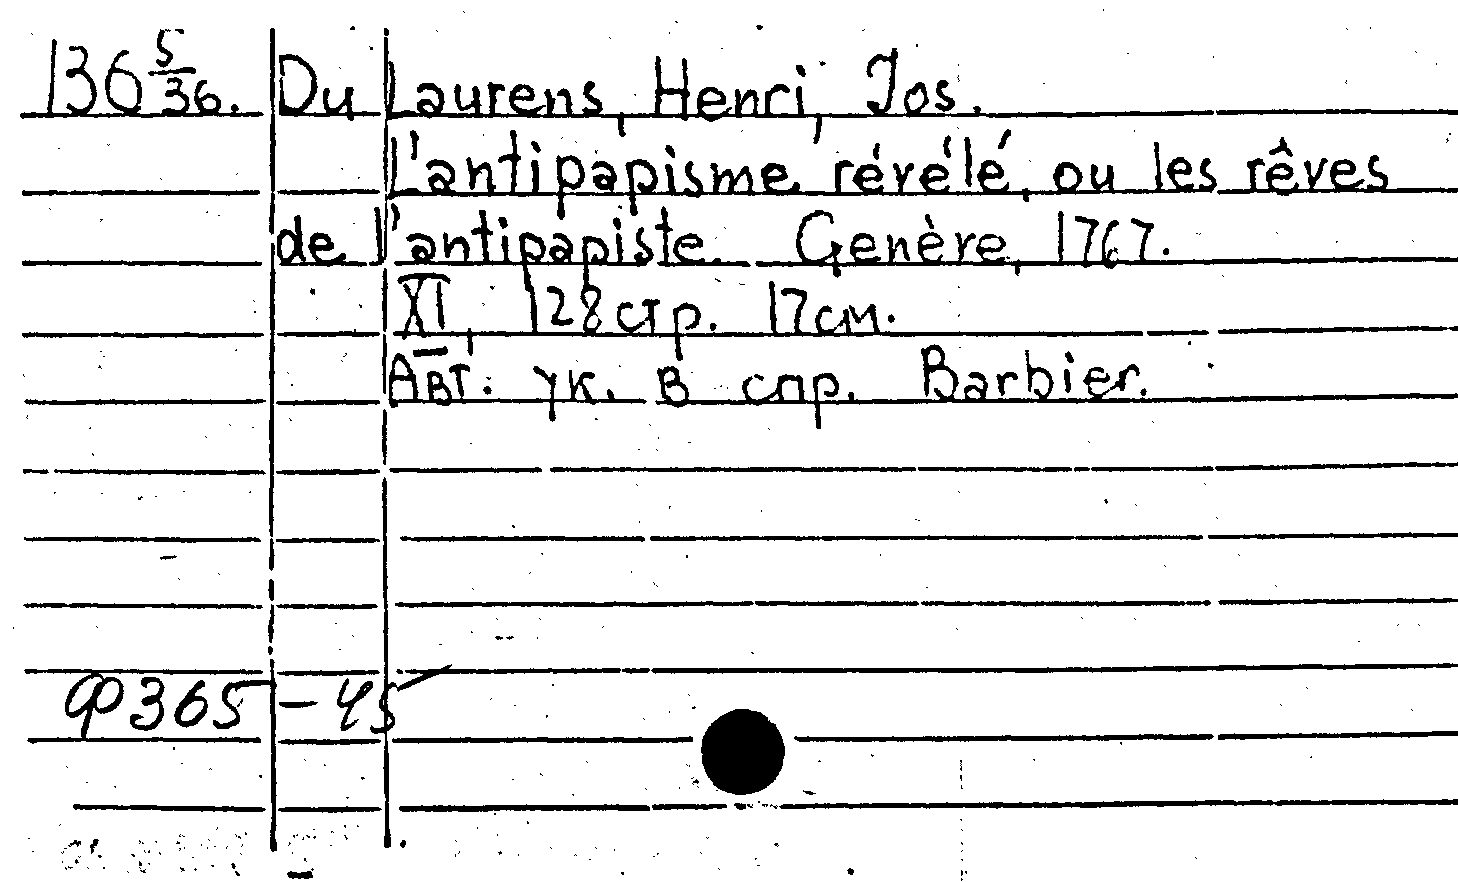 136 5/36. Du Laurens, Henri, Jos.
L'antipapisme révélé, ou les rêves
de l'antipapiste. Genève, 1767.
XI, 128 стр. 17 см.
Авт. ук. в спр. Barbier.
Ф 365-45